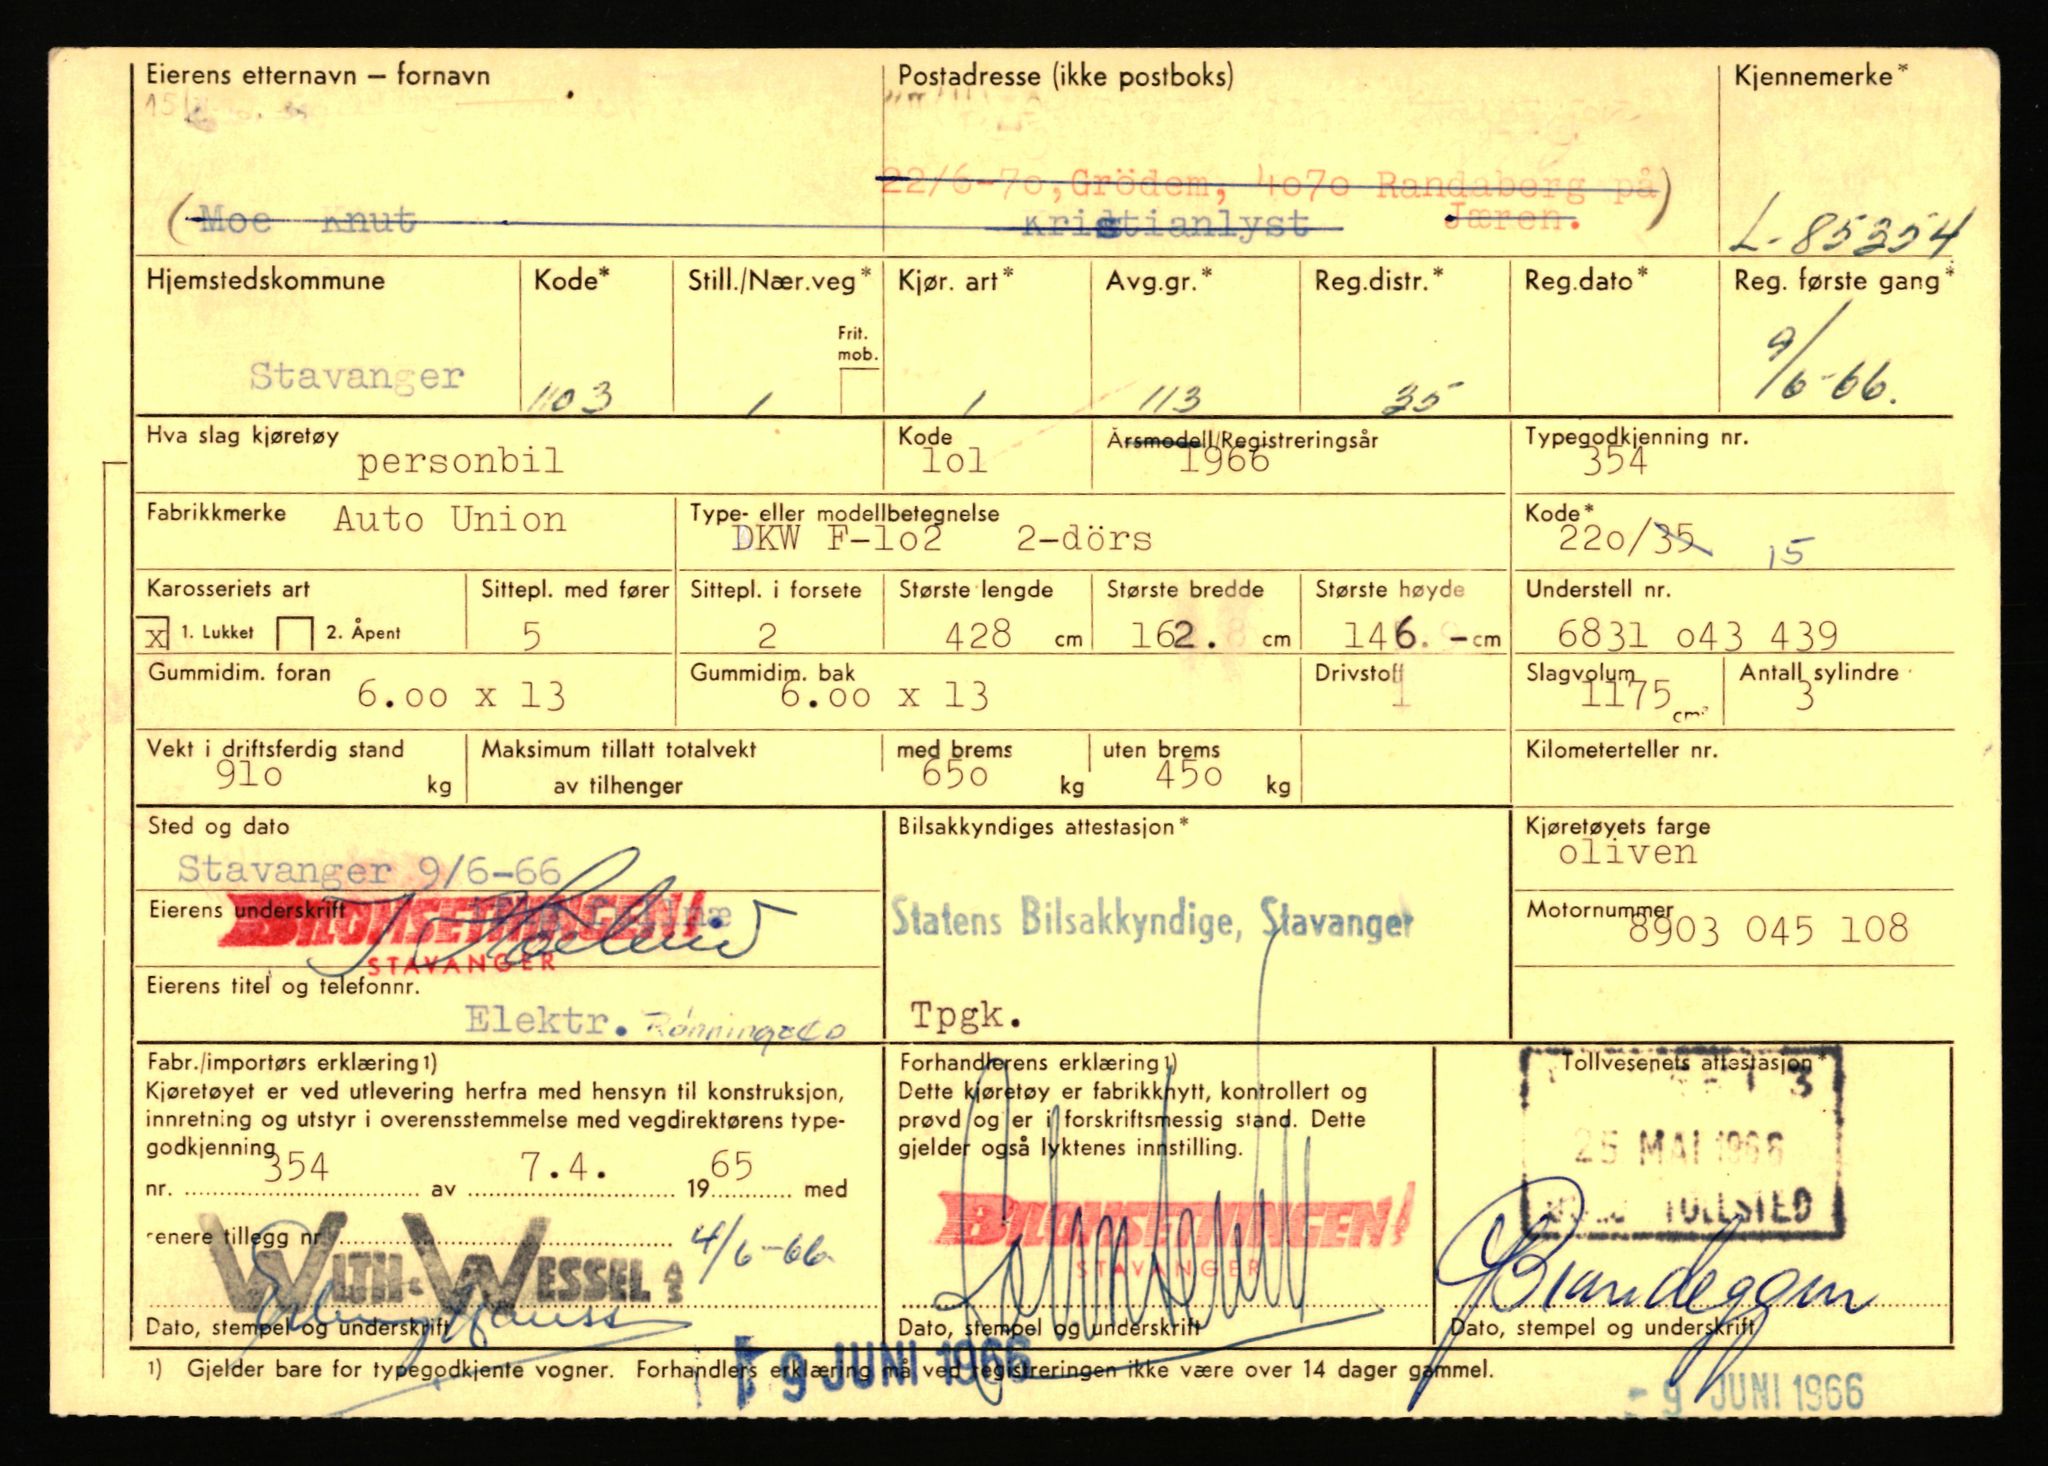 Eierens etternavn – fornavn
Postadresse (ikke postboks)
Kjennemerke*
22/6-7o, Grödem, 4o7o Randaberg på
( Moe Knut Kristianlyst Jæren. )
L-85354
Hjemstedskommune Kode* Still./Nær.veg* Kjør. art* Avg.gr.* Reg.distr.* Reg.dato* Reg. første gang*
Frit. mob.
Stavanger 1103 1 1 113 35 9/6-66.
Hva slag kjøretøy Kode Årsmodell/Registreringsår Typegodkjenning nr.
personbil 1o1 1966 354
Fabrikkmerke Auto Union Type- eller modellbetegnelse Kode*
DKW F-1o2 2-dörs 22o/35 15
Karosseriets art Sittepl. med fører Sittepl. i forsete Største lengde Største bredde Største høyde Understell nr.
x 1. Lukket 2. Åpent 5 2 428 cm 162. cm 146.-cm 6831 o43 439
Gummidim. foran Gummidim. bak Drivstoff Slagvolum Antall sylindre
6.oo x 13 6.oo x 13 1 1175 cm³ 3
Vekt i driftsferdig stand Maksimum tillatt totalvekt med brems uten brems Kilometerteller nr.
91o kg av tilhenger 65o kg 45o kg
Sted og dato Bilsakkyndiges attestasjon* Kjøretøyets farge
Stavanger 9/6-66 oliven
Eierens underskrift Motornummer
BILOMSETNINGEN!
STAVANGER
Statens Bilsakkyndige, Stavanger
8903 045 108
Eierens titel og telefonnr.
Elektr.
Tpgk.
Fabr./importørs erklæring1)
Kjøretøyet er ved utlevering herfra med hensyn til konstruksjon,
innretning og utstyr i overensstemmelse med vegdirektørens type-
godkjenning
nr. 354 av 7.4. 1965 med
senere tillegg nr. 4/6-66
WITH & WESSEL A/S
Dato, stempel og underskrift
Forhandlerens erklæring1)
Dette kjøretøy er fabrikknytt, kontrollert og
prøvd og er i forskriftsmessig stand. Dette
gjelder også lyktenes innstilling.
BILOMSETNINGEN!
STAVANGER
Dato, stempel og underskrift
Tollvesenets attestasjon*
3
25 MAI 1966
TOLLSTED
Brandeggen
Dato, stempel og underskrift
1) Gjelder bare for typegodkjente vogner. Forhandlers erklæring må ved registreringen ikke være over 14 dager gammel.
9 JUNI 1966
- 9 JUNI 1966